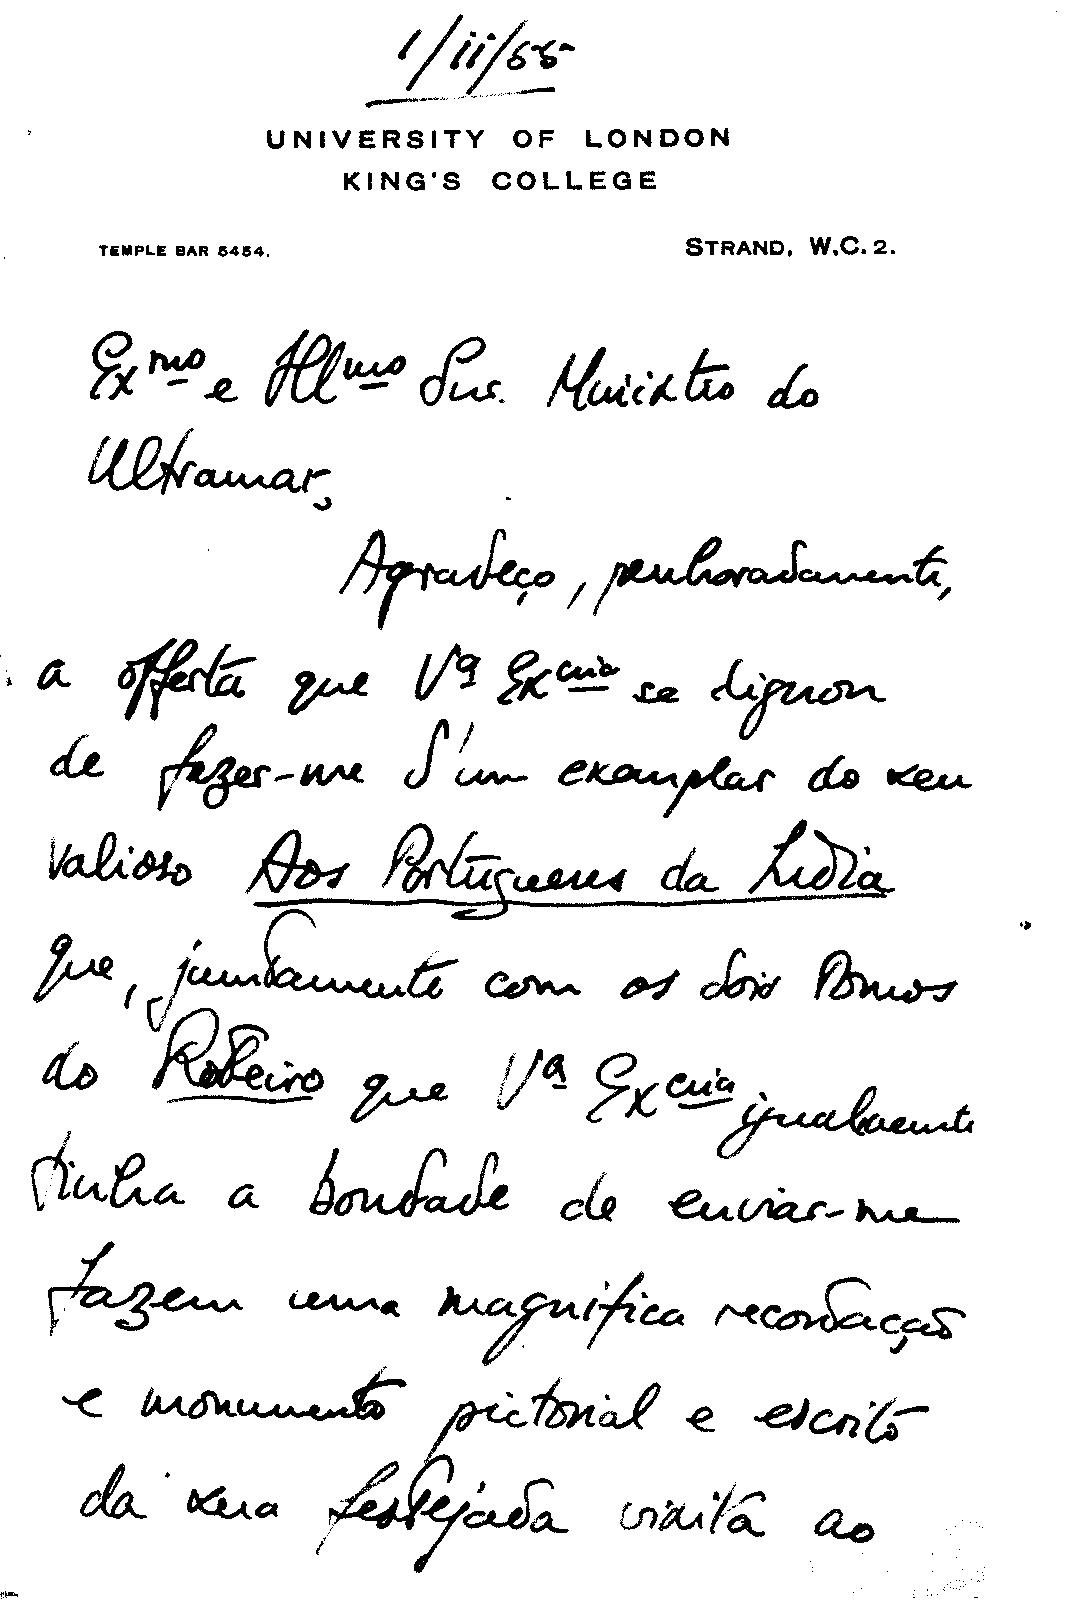 1/ii/55
UNIVERSITY OF LONDON
KING'S COLLEGE
TEMPLE BAR 5454.
STRAND, W.C. 2.
Ex.mo e Ill.mo Snr. Ministro do
Ultramar,
Agradeço, penhoradamente,
a offerta que Vª Ex.cia se dignou
de fazer-me d'um exemplar do seu
valioso Aos Portugueses da Índia
que, juntamente com os dois tomos
do Roteiro que Vª Ex.cia igualmente
tinha a bondade de enviar-me
fazem uma magnífica recordação
e monumento pictorial e escrito
da sua festejada visita ao